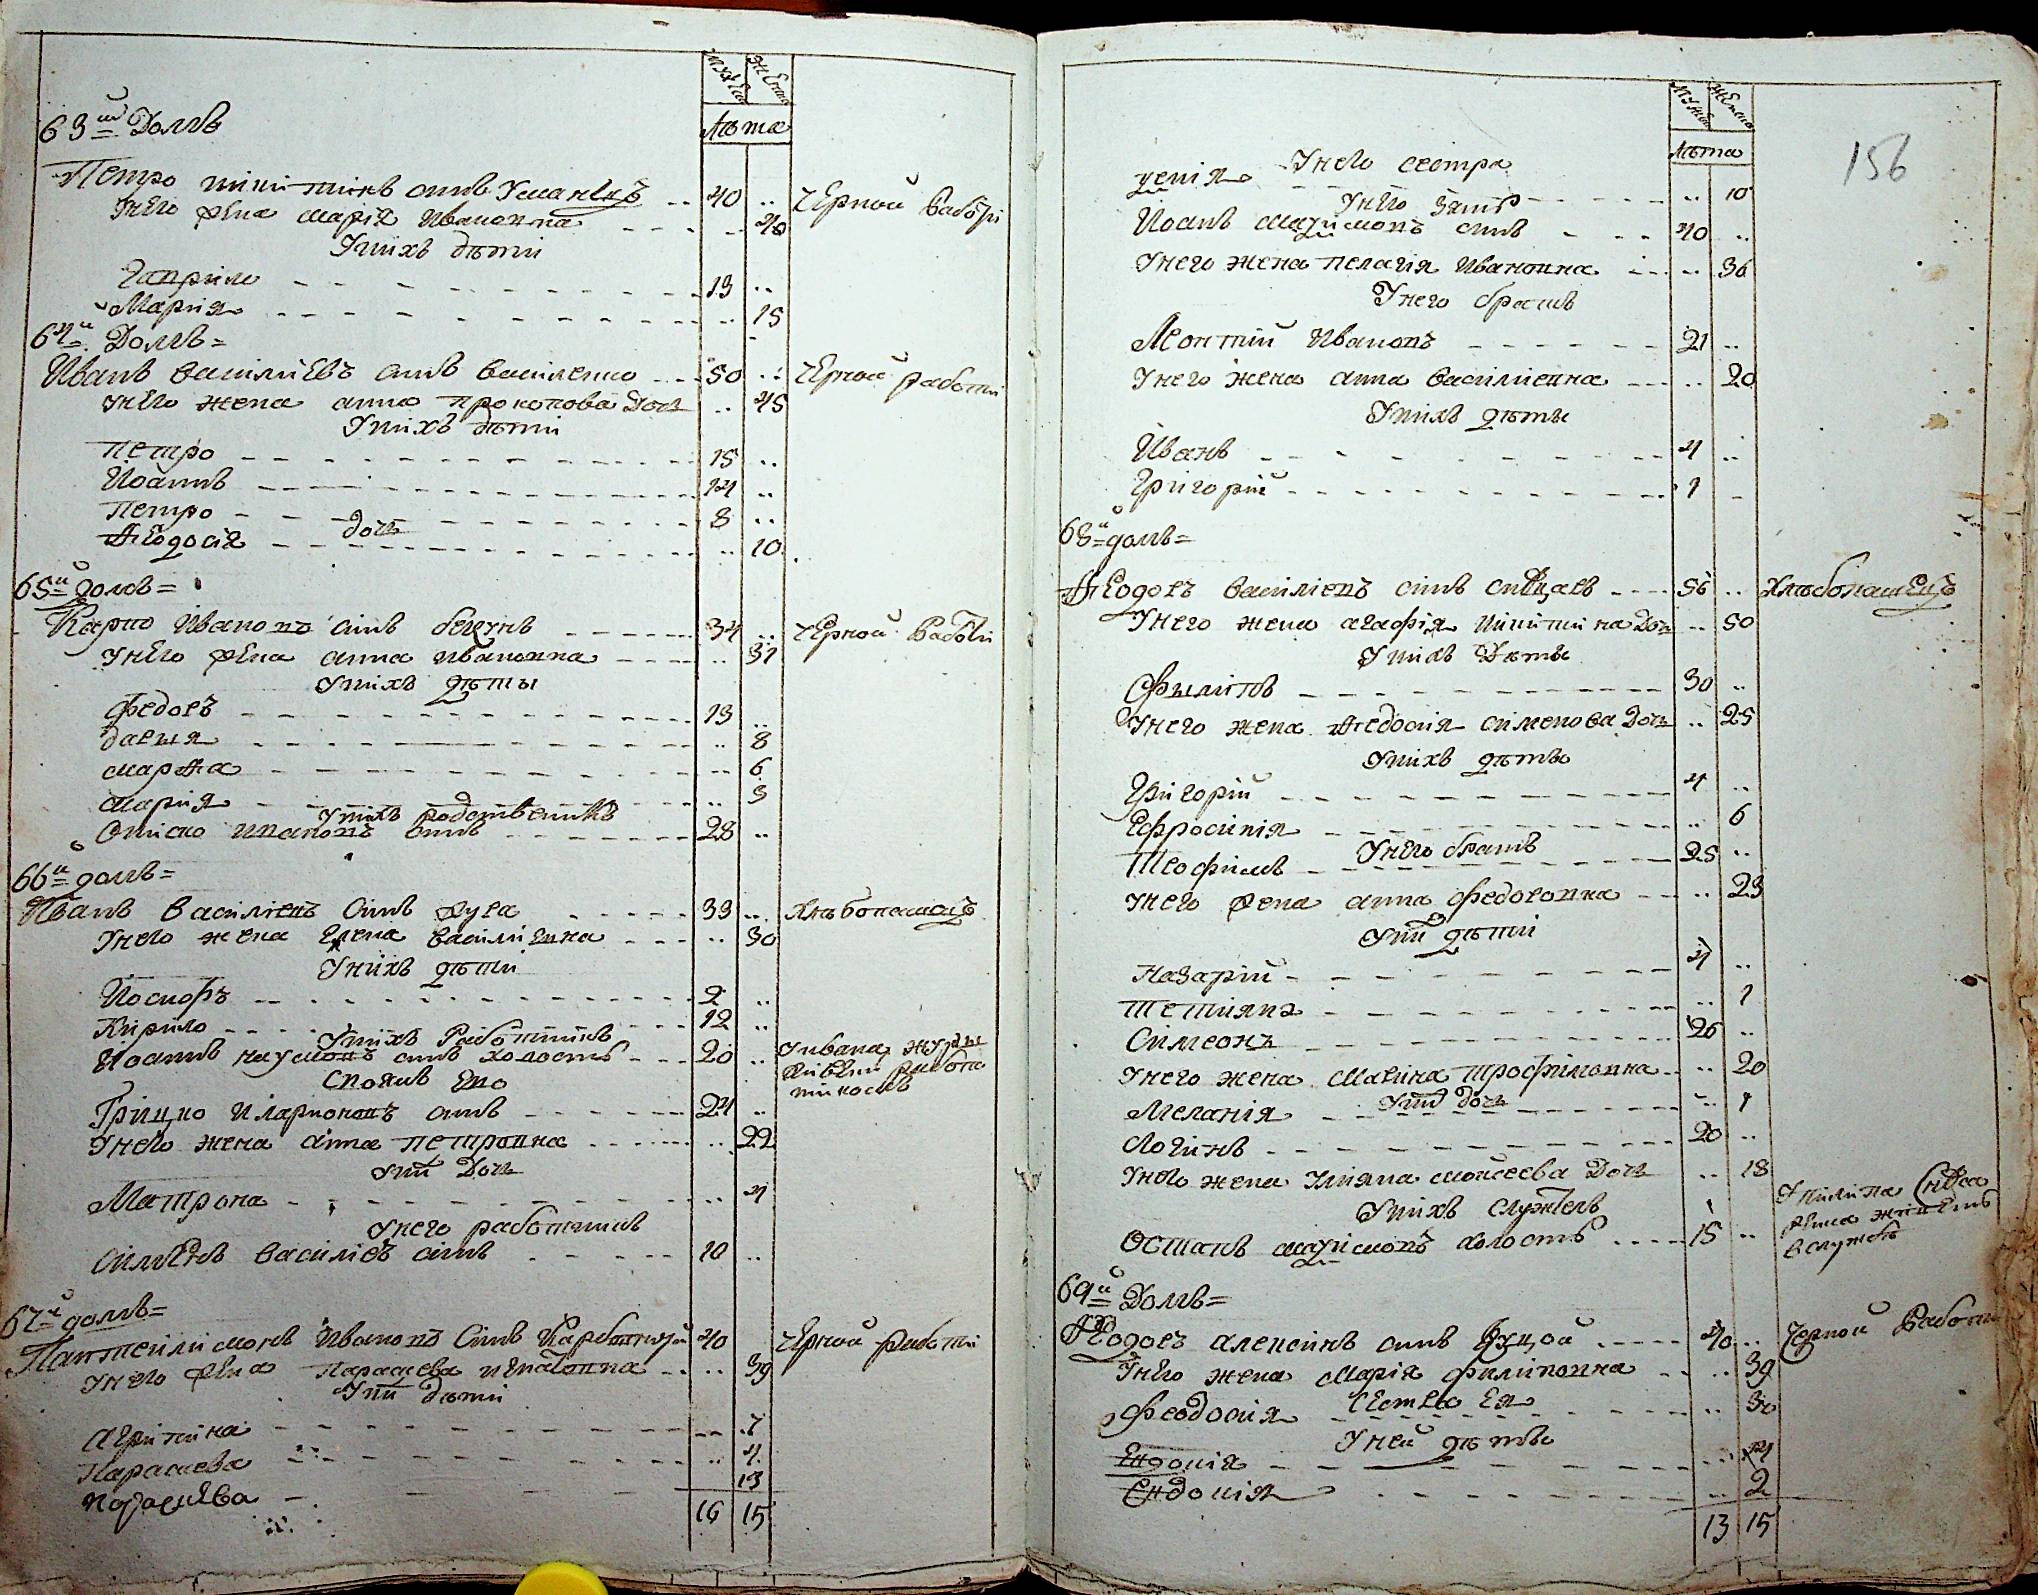 Мужеска Женска
Лѣта
63й Домъ
Петро никитинъ синъ Уманецъ 40 .. чЕрной Работи
Унего жена мария Ивановна .. 40
Унихъ дѣти
Гаврило 13 ..
Мария .. 15
64й Домъ =
Иванъ Василиевъ синъ Василенко 50 .. чЕрной работи
унего жена анна прокопова Дочь .. 45
Унихъ дѣти
Петро 15 ..
Иоаннъ 14 ..
Петро 8 ..
дочь
Ѳеодосия .. 10
65й домъ =
Карпо Ивановъ синъ бекунъ 34 .. чЕрной Работи
унего жена анна ивановна .. 31
Унихъ дѣты
Федоръ 13 ..
дарья .. 8
марѳа .. 6
мария .. 3
Унихъ родственникъ
ивановъ синъ 28 ..
66й домъ =
Иванъ Василиевъ Синъ жура 33 .. хлѣбопашецъ
унего жена Елена Василиевна .. 30
Унихъ дѣти
Иосифъ 2 ..
Кирило 12 ..
Унихъ Работникъ
Иоаннъ наумовъ синъ холостъ 20 .. Уивана журы
Споякъ Его
Грицко иларионовъ синъ 24 ..
Унего жена анна петровна .. 22
Уних Дочь
Матрона .. 4
Унего работникъ
Симеонъ Василиевъ синъ 10 ..
67й домъ =
Пантеилимонъ Ивановъ Синъ 40 чЕрной работи
унего жена Параскева игнатовна .. 39
Уних дѣти
агрипина .. 7
Параскева .. 4
параскева 13
16 15
156
Мужеска Женска
лѣта
Унего сестра
.. 10
Унего зять
Иоанъ максимовъ синъ 40 ..
Унего жена пелагия Ивановна .. 36
Унего братъ
Леонтий Ивановъ 21 ..
Унего жена анна Василиевна .. 20
Унихъ дѣты
Иванъ 4 ..
Григорий 1 ..
68й домъ =
Ѳеодоръ Василиевъ синъ 56 .. Хлѣбопашецъ
Унего жена агафия никитина Дочь .. 50
Унихъ Дѣты
Филипъ 30 ..
Унего жена Ѳедосия сименова Дочь .. 25
Унихъ дѣты
Григорий 4 ..
Ефросиния .. 6
Унего братъ
Теофилъ 25 ..
унего жена анна федоровна .. 23
Уних дѣти
Назарий 4 ..
Тетияна .. 1
Симеонъ 26 ..
Унего жена Марина трофимовна .. 20
Уних дочь
Мелания .. 1
Логинъ 20 ..
Унего жена Улияна моисеева Дочь .. 18
Унихъ Служтель
Остапъ максимовъ холостъ 15 ..
вслужбѣ
69й Домъ =
Ѳеодоръ алексинъ синъ Куцой 40 .. Чорной Работи
Унего жена Мария филиповна .. 39
сестра Ея
феодосия .. 30
Уней дѣты
Евдокия .. 4
Евдокия .. 2
13 15